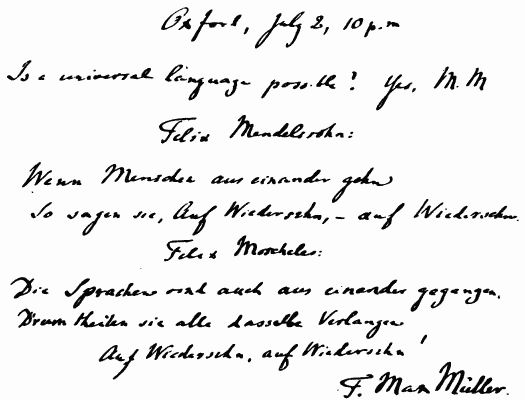 Oxford, July 2, 10 p.m
Is a universal language possible? Yes, M. M
Felix Mendelssohn:
Wenn Menschen aus einander gehn
So sagen sie, Auf Wiedersehn, – auf Wiedersehn.
Felix Moscheles:
Die Sprachen sind auch aus einander gegangen.
D'rum theilen sie alle dasselbe Verlangen
Auf Wiedersehn, auf Wiedersehn!
F. Max Müller.